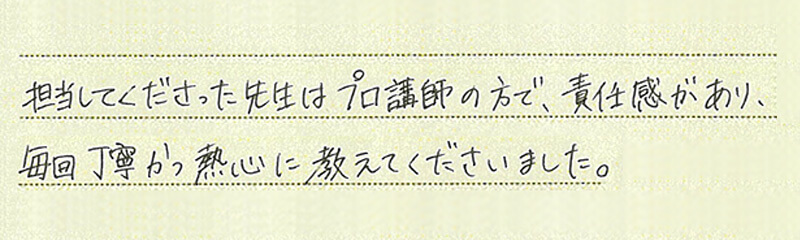 担当してくださった先生はプロ講師の方で、責任感があり、
毎回丁寧かつ熱心に教えてくださいました。